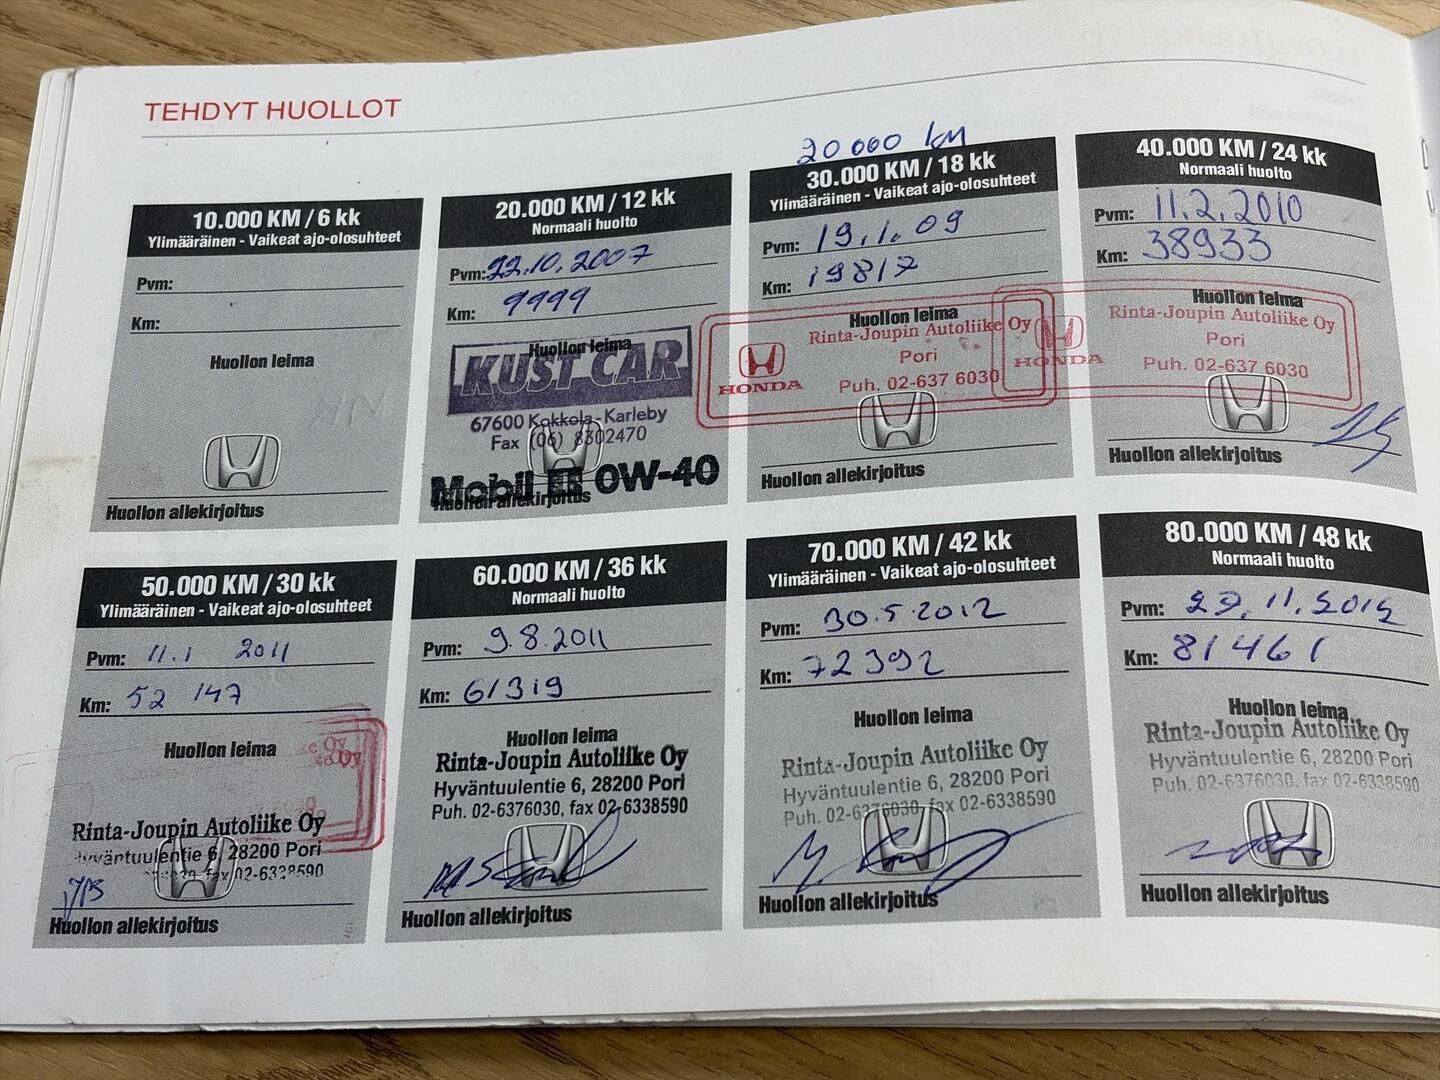 TEHDYT HUOLLOT
10.000 KM / 6 kk
Ylimääräinen - Vaikeat ajo-olosuhteet
Pvm:
Km:
Huollon leima
Huollon allekirjoitus
20.000 KM / 12 kk
Normaali huolto
Pvm: 22.10.2007
Km: 9999
Huollon leima
KUST CAR
67600 Kokkola-Karleby
Fax (06) 8302470
Mobil 1 0W-40
Huollon allekirjoitus
20 000 km
30.000 KM / 18 kk
Ylimääräinen - Vaikeat ajo-olosuhteet
Pvm: 19.1.09
Km: 19817
Huollon leima
Rinta-Joupin Autoliike Oy
Pori
HONDA
Puh. 02-637 6030
Huollon allekirjoitus
40.000 KM / 24 kk
Normaali huolto
Pvm: 11.2.2010
Km: 38933
Huollon leima
Rinta-Joupin Autoliike Oy
Pori
HONDA
Puh. 02-637 6030
Huollon allekirjoitus
50.000 KM / 30 kk
Ylimääräinen - Vaikeat ajo-olosuhteet
Pvm: 11.1 2011
Km: 52 147
Huollon leima
Rinta-Joupin Autoliike Oy
Hyväntuulentie 6, 28200 Pori
fax 02-6338590
Huollon allekirjoitus
60.000 KM / 36 kk
Normaali huolto
Pvm: 9.8.2011
Km: 61319
Huollon leima
Rinta-Joupin Autoliike Oy
Hyväntuulentie 6, 28200 Pori
Puh. 02-6376030, fax 02-6338590
Huollon allekirjoitus
70.000 KM / 42 kk
Ylimääräinen - Vaikeat ajo-olosuhteet
Pvm: 30.5.2012
Km: 72392
Huollon leima
Rinta-Joupin Autoliike Oy
Hyväntuulentie 6, 28200 Pori
Puh. 02-6376030, fax 02-6338590
Huollon allekirjoitus
80.000 KM / 48 kk
Normaali huolto
Pvm:
Km: 81461
Huollon leima
Rinta-Joupin Autoliike Oy
Hyväntuulentie 6, 28200 Pori
Puh. 02-6376030, fax 02-6338590
Huollon allekirjoitus